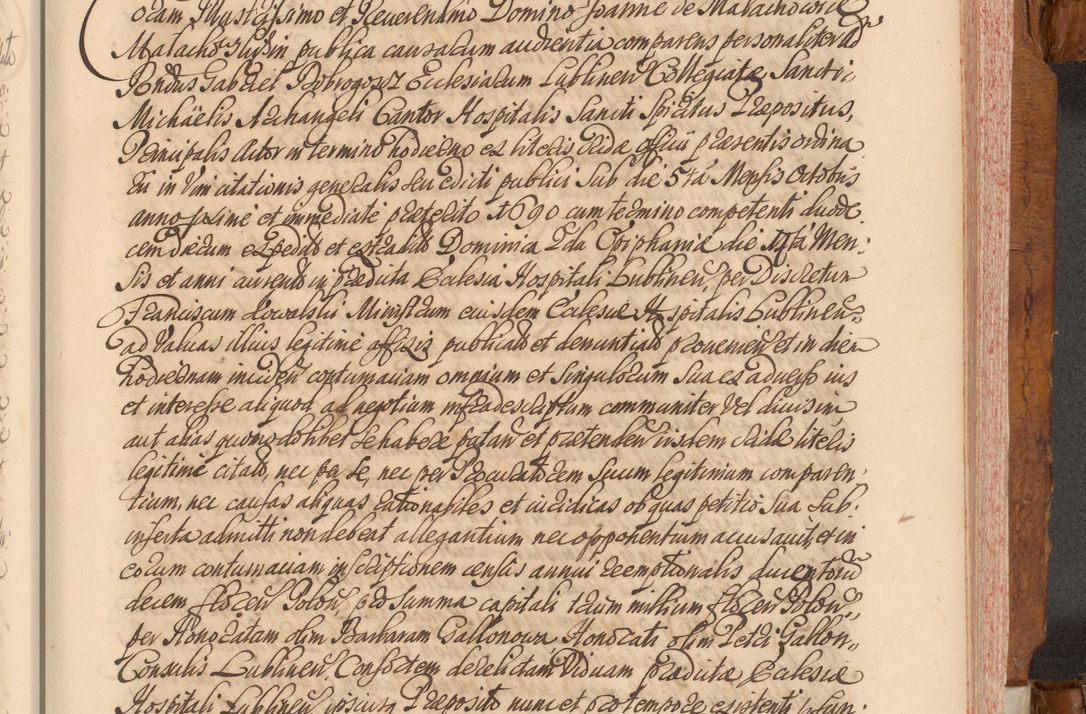 oram Illustrissimo et Reverendmo Domino Joanne de Malachowice
Malachowskj in publica causarum audientia comparens personaliter Ad
Rendus Gabriel Dobrogoszt Ecclesiarum Lublinen Collegiatæ Sancti
Michaëlis Archangeli Cantor Hospitalis Sancti Spiritus Præpositus,
Principalis Actor in termino hodierno ex literis dictæ Officii præsentis ordina
in Vim citationis generalis seu edicti publici sub die 5ta Mensis Octobris
anno proxime et immediate præterito 1690 cum termino competenti duode
cem dierum expeditis et Dominica 2da Epiphaniæ die Men:
sis et anni currentis in prædicta Ecclesia Hospitali Lublinen, per Discretum
Franciscum Kowalskii Ministrum eiusdem Ecclesiæ Hospitalis Lublinen:
ad Valuas illius legitime affixis publicatis et denuntiatis provenien et in diem
hodiernam inciden contumaciam omnium et singulorum sua ex adverso ius
et interesse aliquod ad negotium infrascriptum communiter Vel divisim
aut alias quomodolibet se habere putan et prætenden iisdem literis
legitime citatis, nec per se, nec per Procuratorem suum legitimum comparen:
tium, nec causas aliquas rationabiles et iuridicas ob quas petitio sua sub:
inserta admitti non debeat allegantium nec opponentium accusavit, et in
eorum contumaciam inscriptionem census annui reemptionalis ducentorum
decem floren Polon, pro summa capitali trium millium floren Polon,
per Honoratam olim Barbaram Gallonowa Honorati olim Petri Gallon,
Consulis Lublinen, Consortem derelictam Viduam prædictæ Ecclesiæ
Hospitali Lublinen ipsiusq Præposito nunc et pro tempore existenti